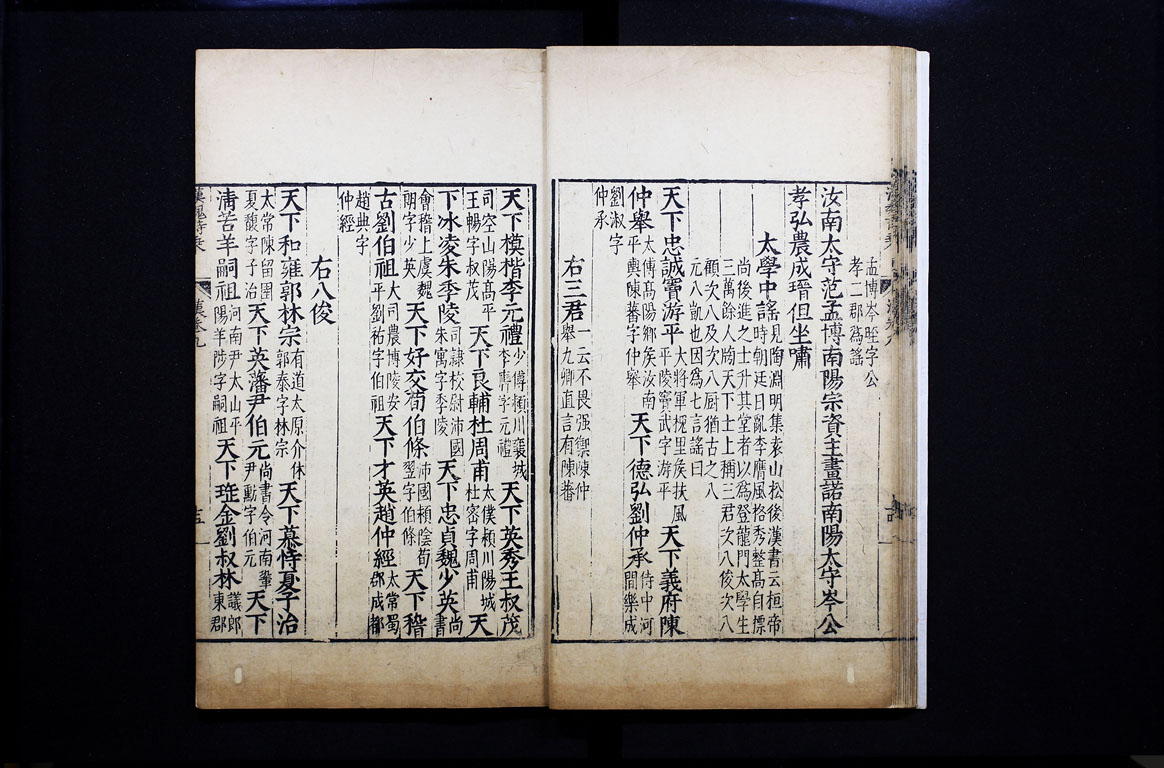 孟博岑晊字公
孝二郡為謠
汝南太守范孟博南陽宗資主畫諾南陽太守岑公
孝弘農成瑨但坐嘯
太學中謠見陶淵明集袁山松後漢書云桓帝
時朝廷日亂李膺風格秀整高自標
尚後進之士升其堂者以為登龍門太學生
三萬餘人牓天下士上稱三君次八俊次八
顧次八及次八厨猶古之八
元八凱也因為七言謠曰
天下忠誠竇游平大將軍槐里侯扶風平陵竇武字游平天下義府陳
仲舉太傅高陽鄉侯汝南平輿陳蕃字仲舉天下德弘劉仲承侍中河間樂成
劉淑字
仲承
右三君一云不畏强禦陳仲舉九卿直言有陳蕃
天下模楷李元禮少傅潁川襄城李膺字元禮天下英秀王叔茂
司空山陽高平王暢字叔茂天下良輔杜周甫太僕潁川陽城杜密字周甫天
下冰凌朱季陵司隷校尉沛國朱寓字季陵天下忠貞魏少英尚書
會稽上虞魏朗字少英天下好交荀伯條沛國潁陰荀翌字伯條天下稽
古劉伯祖大司農博陵安平劉祐字伯祖天下才英趙仲經太常蜀郡成都
趙典字
仲經
右八俊
天下和雍郭林宗有道太原介休郭泰字林宗天下慕恃夏子治
太常陳留圉夏馥字子治天下英藩尹伯元尚書令河南鞏尹勳字伯元天下
清苦羊嗣祖河南尹太山平陽羊陟字嗣祖天下珤金劉叔林議郎東郡
漢魏詩乘 漢卷九